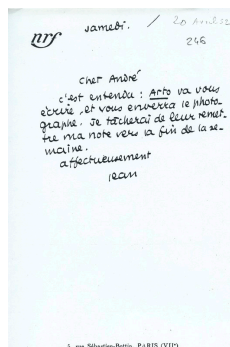 nrf
samedi. /
246
cher André
c'est entendu : Arto va vous
écrire, et vous enverra le photo-
graphe. Je tâcherai de leur remet-
tre ma note vers la fin de la se-
maine.
affectueusement
Jean
5, rue Sébastien-Bottin, PARIS (VIIe)